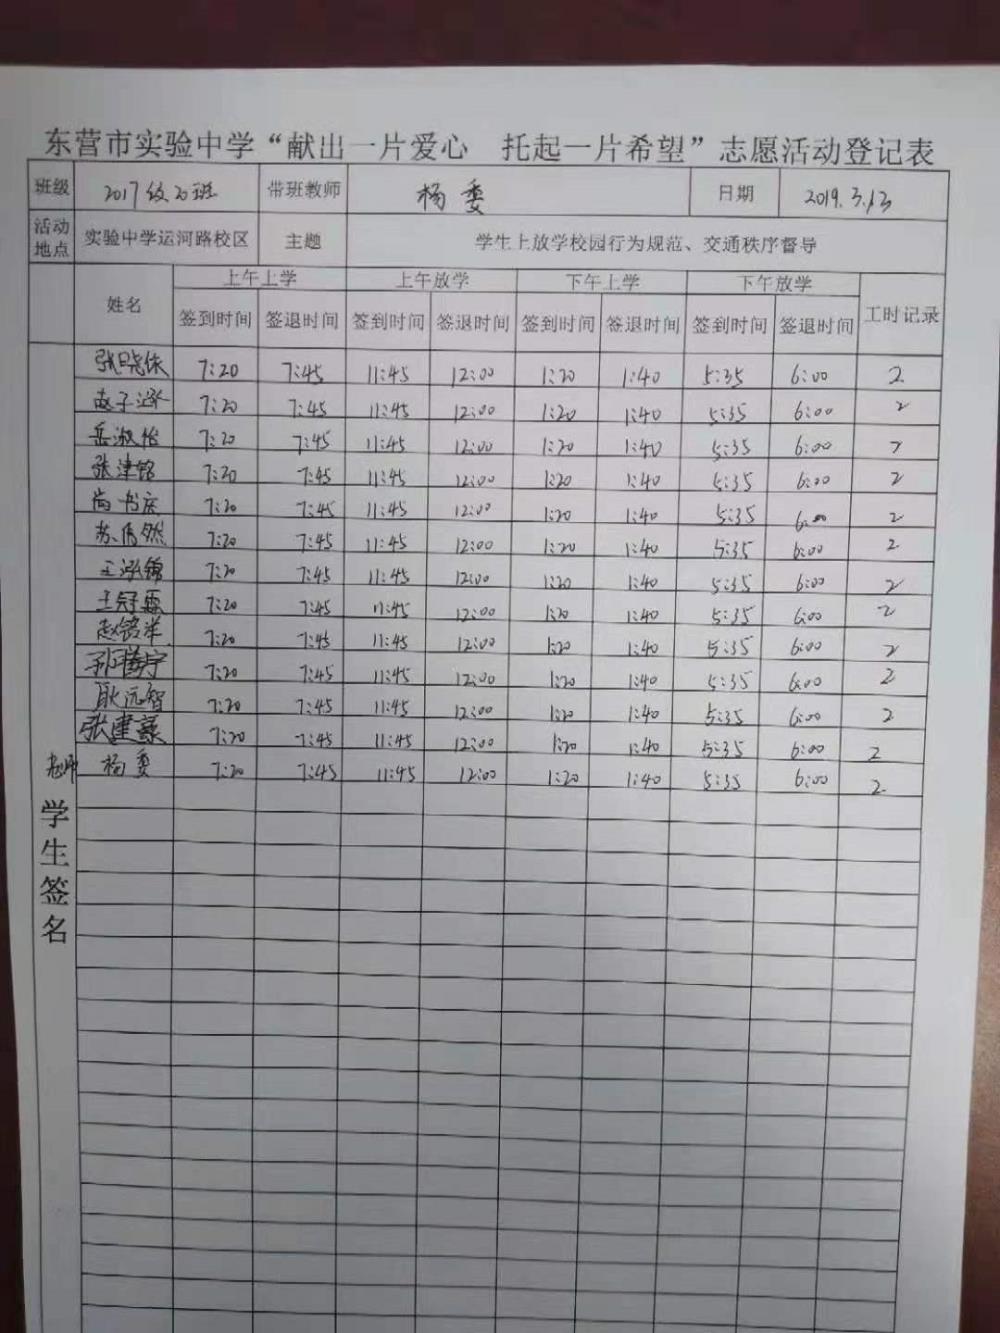 东营市实验中学“献出一片爱心 托起一片希望”志愿活动登记表
班级 2017级 班 带班教师 杨委 日期 2019.3.13
活动地点 实验中学运河路校区 主题 学生上放学校园行为规范、交通秩序督导
姓名 上午上学 上午放学 下午上学 下午放学 工时记录
签到时间 签退时间 签到时间 签退时间 签到时间 签退时间 签到时间 签退时间
张晓依 7:20 7:45 11:45 12:00 1:20 1:40 5:35 6:00 2
赵子涵 7:20 7:45 11:45 12:00 1:20 1:40 5:35 6:00 2
岳淑怡 7:20 7:45 11:45 12:00 1:20 1:40 5:35 6:00 2
张津铭 7:20 7:45 11:45 12:00 1:20 1:40 5:35 6:00 2
尚书 7:20 7:45 11:45 12:00 1:20 1:40 5:35 6:00 2
苏 然 7:20 7:45 11:45 12:00 1:20 1:40 5:35 6:00 2
王泓锦 7:20 7:45 11:45 12:00 1:20 1:40 5:35 6:00 2
王冠霖 7:20 7:45 11:45 12:00 1:20 1:40 5:35 6:00 2
赵铭洋 7:20 7:45 11:45 12:00 1:20 1:40 5:35 6:00 2
宇 7:20 7:45 11:45 12:00 1:20 1:40 5:35 6:00 2
耿远智 7:20 7:45 11:45 12:00 1:20 1:40 5:35 6:00 2
张建豪 7:20 7:45 11:45 12:00 1:20 1:40 5:35 6:00 2
老师 杨委 7:20 7:45 11:45 12:00 1:20 1:40 5:35 6:00 2
学生签名